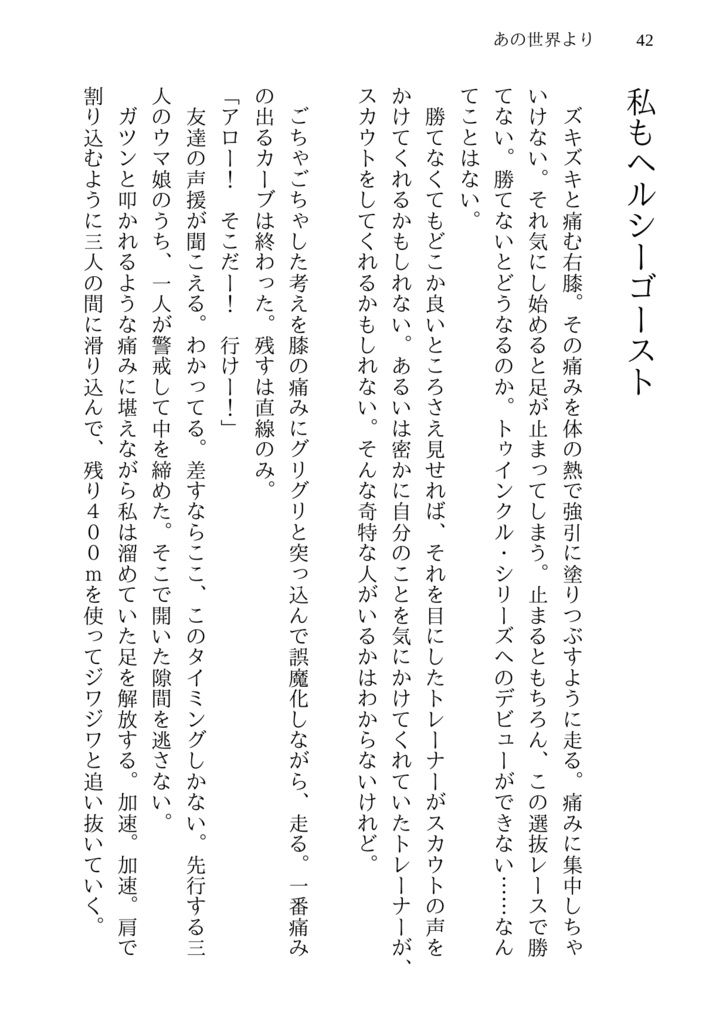 あの世界より 42
私もヘルシーゴースト
ズキズキと痛む右膝。その痛みを体の熱で強引に塗りつぶすように走る。痛みに集中しちゃ
いけない。それ気にし始めると足が止まってしまう。止まるともちろん、この選抜レースで勝
てない。勝てないとどうなるのか。トゥインクル・シリーズへのデビューができない……なん
てことはない。
勝てなくてもどこか良いところさえ見せれば、それを目にしたトレーナーがスカウトの声を
かけてくれるかもしれない。あるいは密かに自分のことを気にかけてくれていたトレーナーが、
スカウトをしてくれるかもしれない。そんな奇特な人がいるかはわからないけれど。
ごちゃごちゃした考えを膝の痛みにグリグリと突っ込んで誤魔化しながら、走る。一番痛み
の出るカーブは終わった。残すは直線のみ。
「アロー！　そこだー！　行けー！」
友達の声援が聞こえる。わかってる。差すならここ、このタイミングしかない。先行する三
人のウマ娘のうち、一人が警戒して中を締めた。そこで開いた隙間を逃さない。
ガツンと叩かれるような痛みに堪えながら私は溜めていた足を解放する。加速。加速。肩で
割り込むように三人の間に滑り込んで、残り４００ｍを使ってジワジワと追い抜いていく。